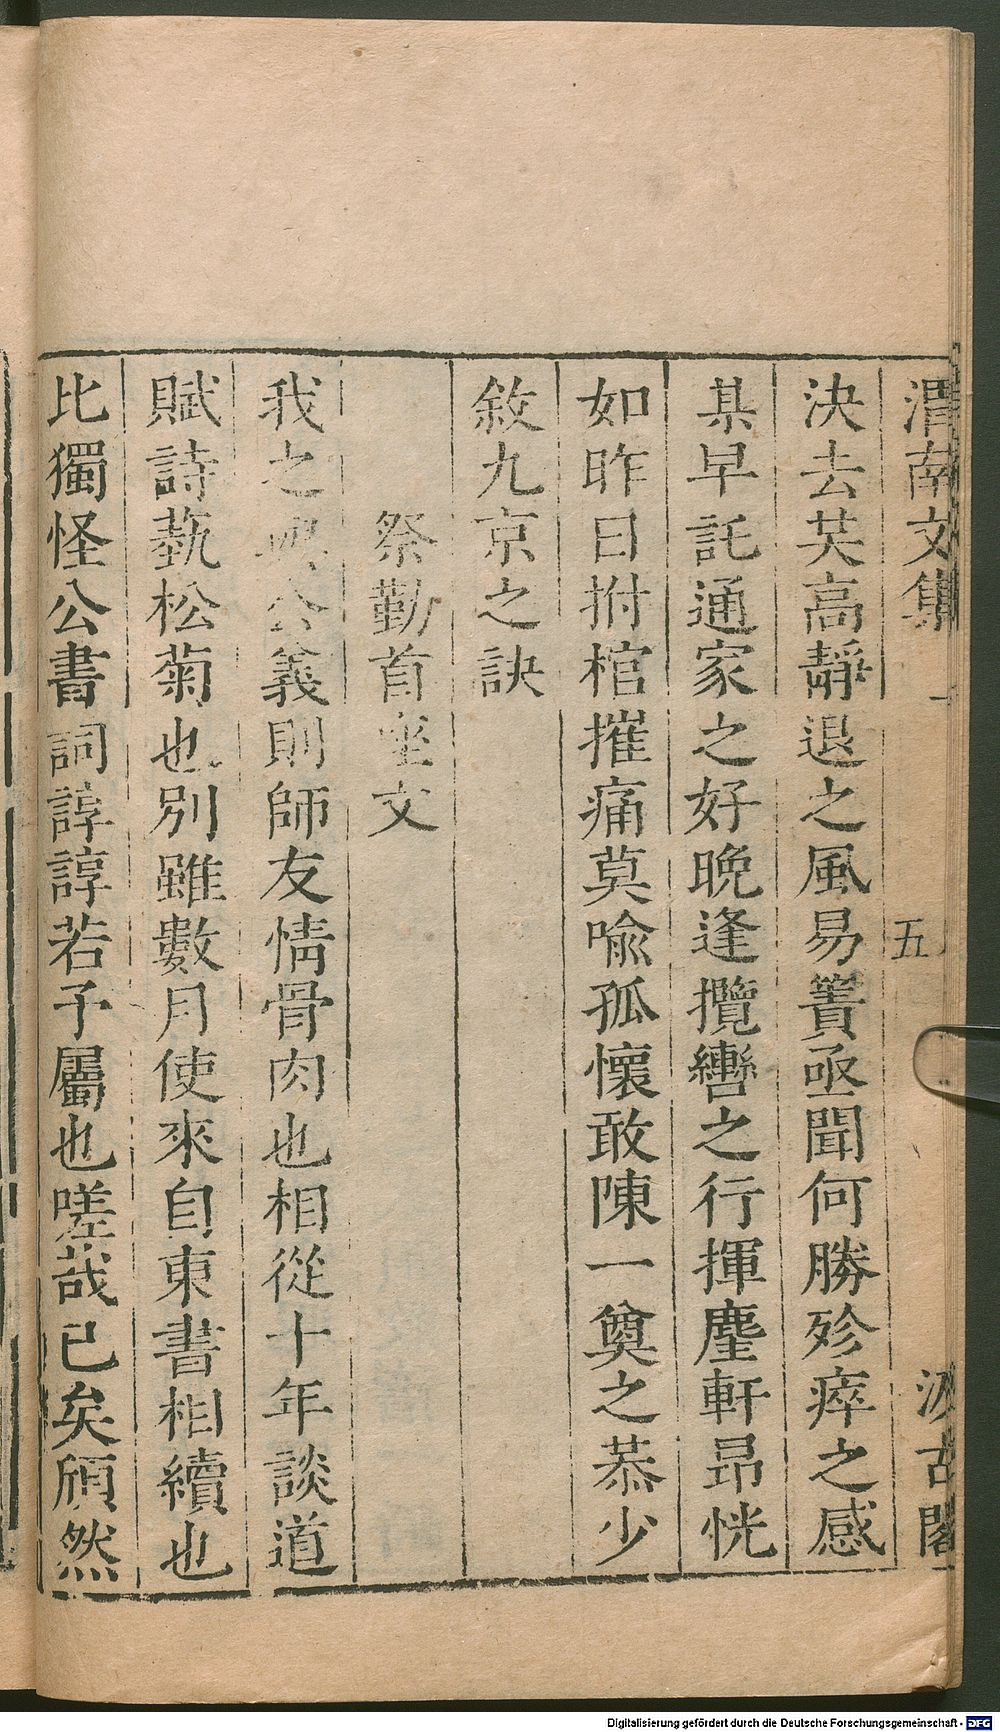 渭南文集 五 汲古閣
決去英高靜退之風易簀亟聞何勝殄瘁之感
某早託通家之好晚逢攬轡之行揮麈軒昂恍
如昨日拊棺摧痛莫喻孤懷敢陳一奠之恭少
敘九京之訣
祭勤首座文
我之與公義則師友情骨肉也相從十年談道
賦詩蓺松菊也別雖數月使來自東書相續也
比獨怪公書詞諄諄若子屬也嗟哉已矣頎然
Digitalisierung gefördert durch die Deutsche Forschungsgemeinschaft - DFG